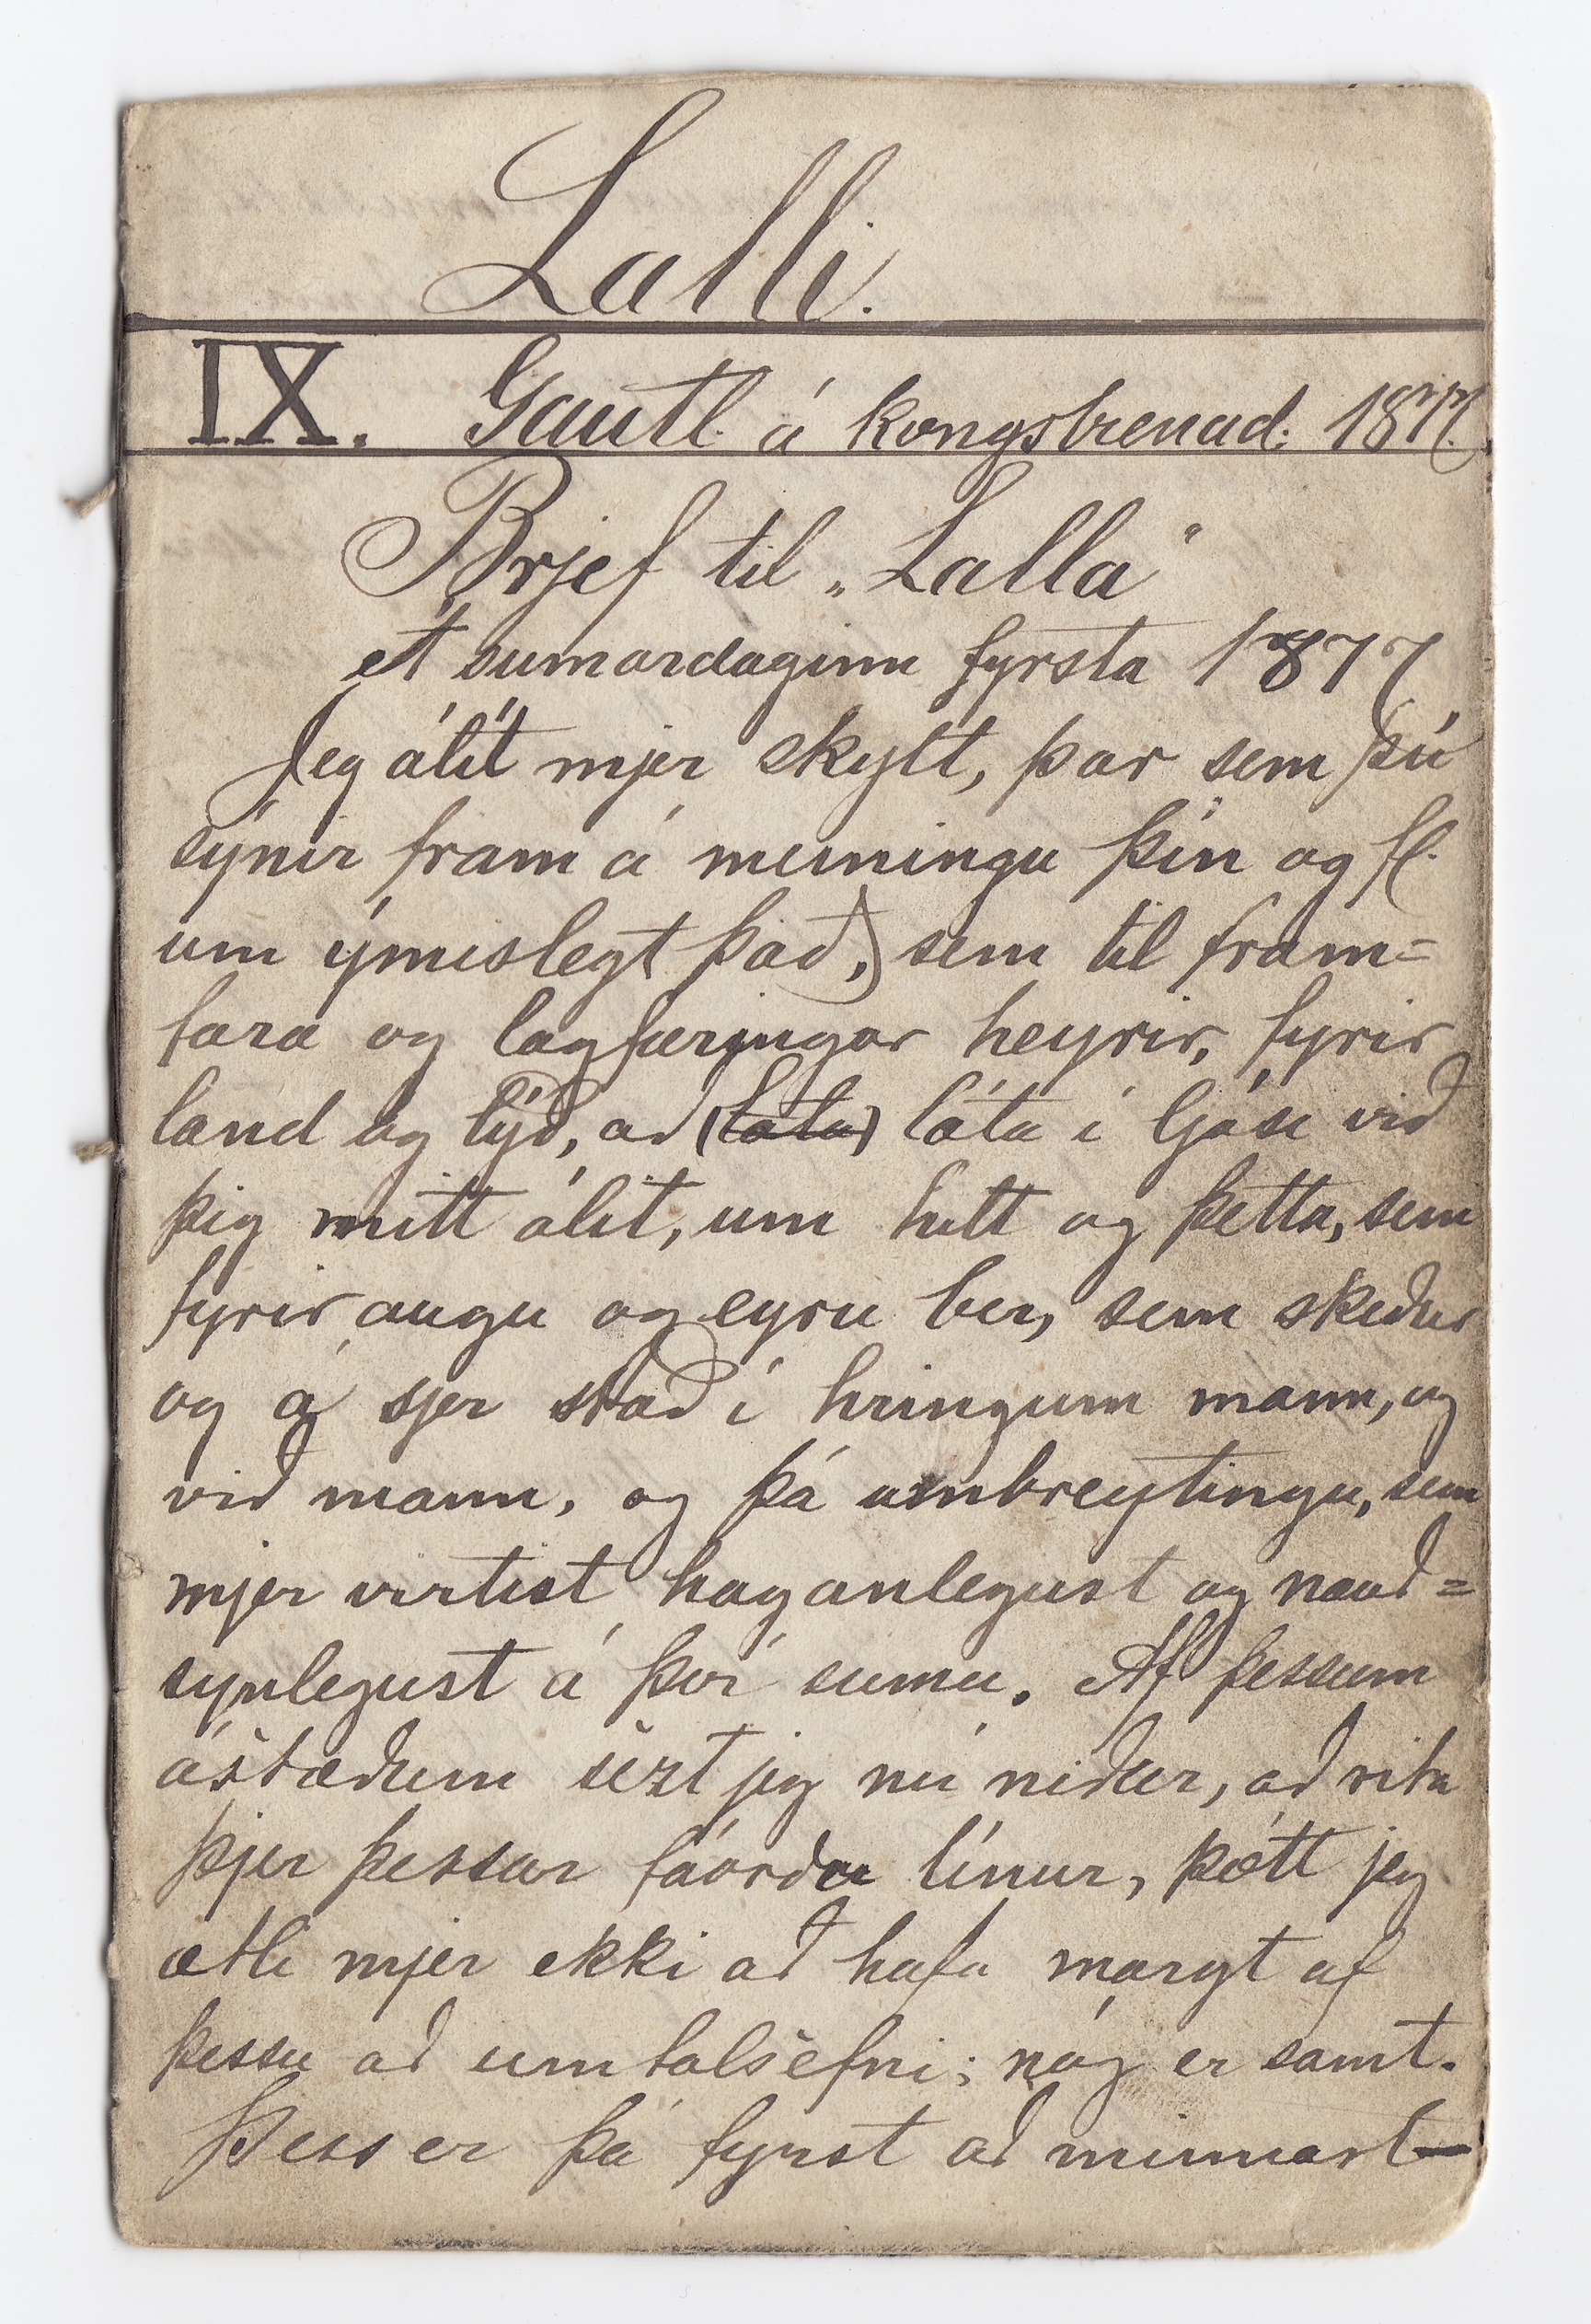 Lalli.
IX. Gautl. á kongsbænad. 1877.
Brjef til „Lalla“
Á sumardaginn fyrsta 1877
Jeg álít mjer skylt, þar sem þú
sýnir fram á meiningu þín og fl.
um ýmislegt það,) sem til fram=
fara og lagfæringar heyrir, fyrir
land og lýð, að (láta) láta í ljósi við
þig mitt álit, um hitt og þetta, sem
fyrir augu og eyru ber, sem skeður
og á sjer stað í hringum mann, og
við mann, og þá umbreytingu, sem
mjer virtist haganlegust og nauð=
synlegust á því sumu. Af þessum
ástæðum sezt jeg nú niður, að rita
þjer þessar fáorðu línur, þótt jeg
ætli mjer ekki að hafa margt af
þessu að umtalsefni; nóg er samt.
Þess er þá fyrst að minnast